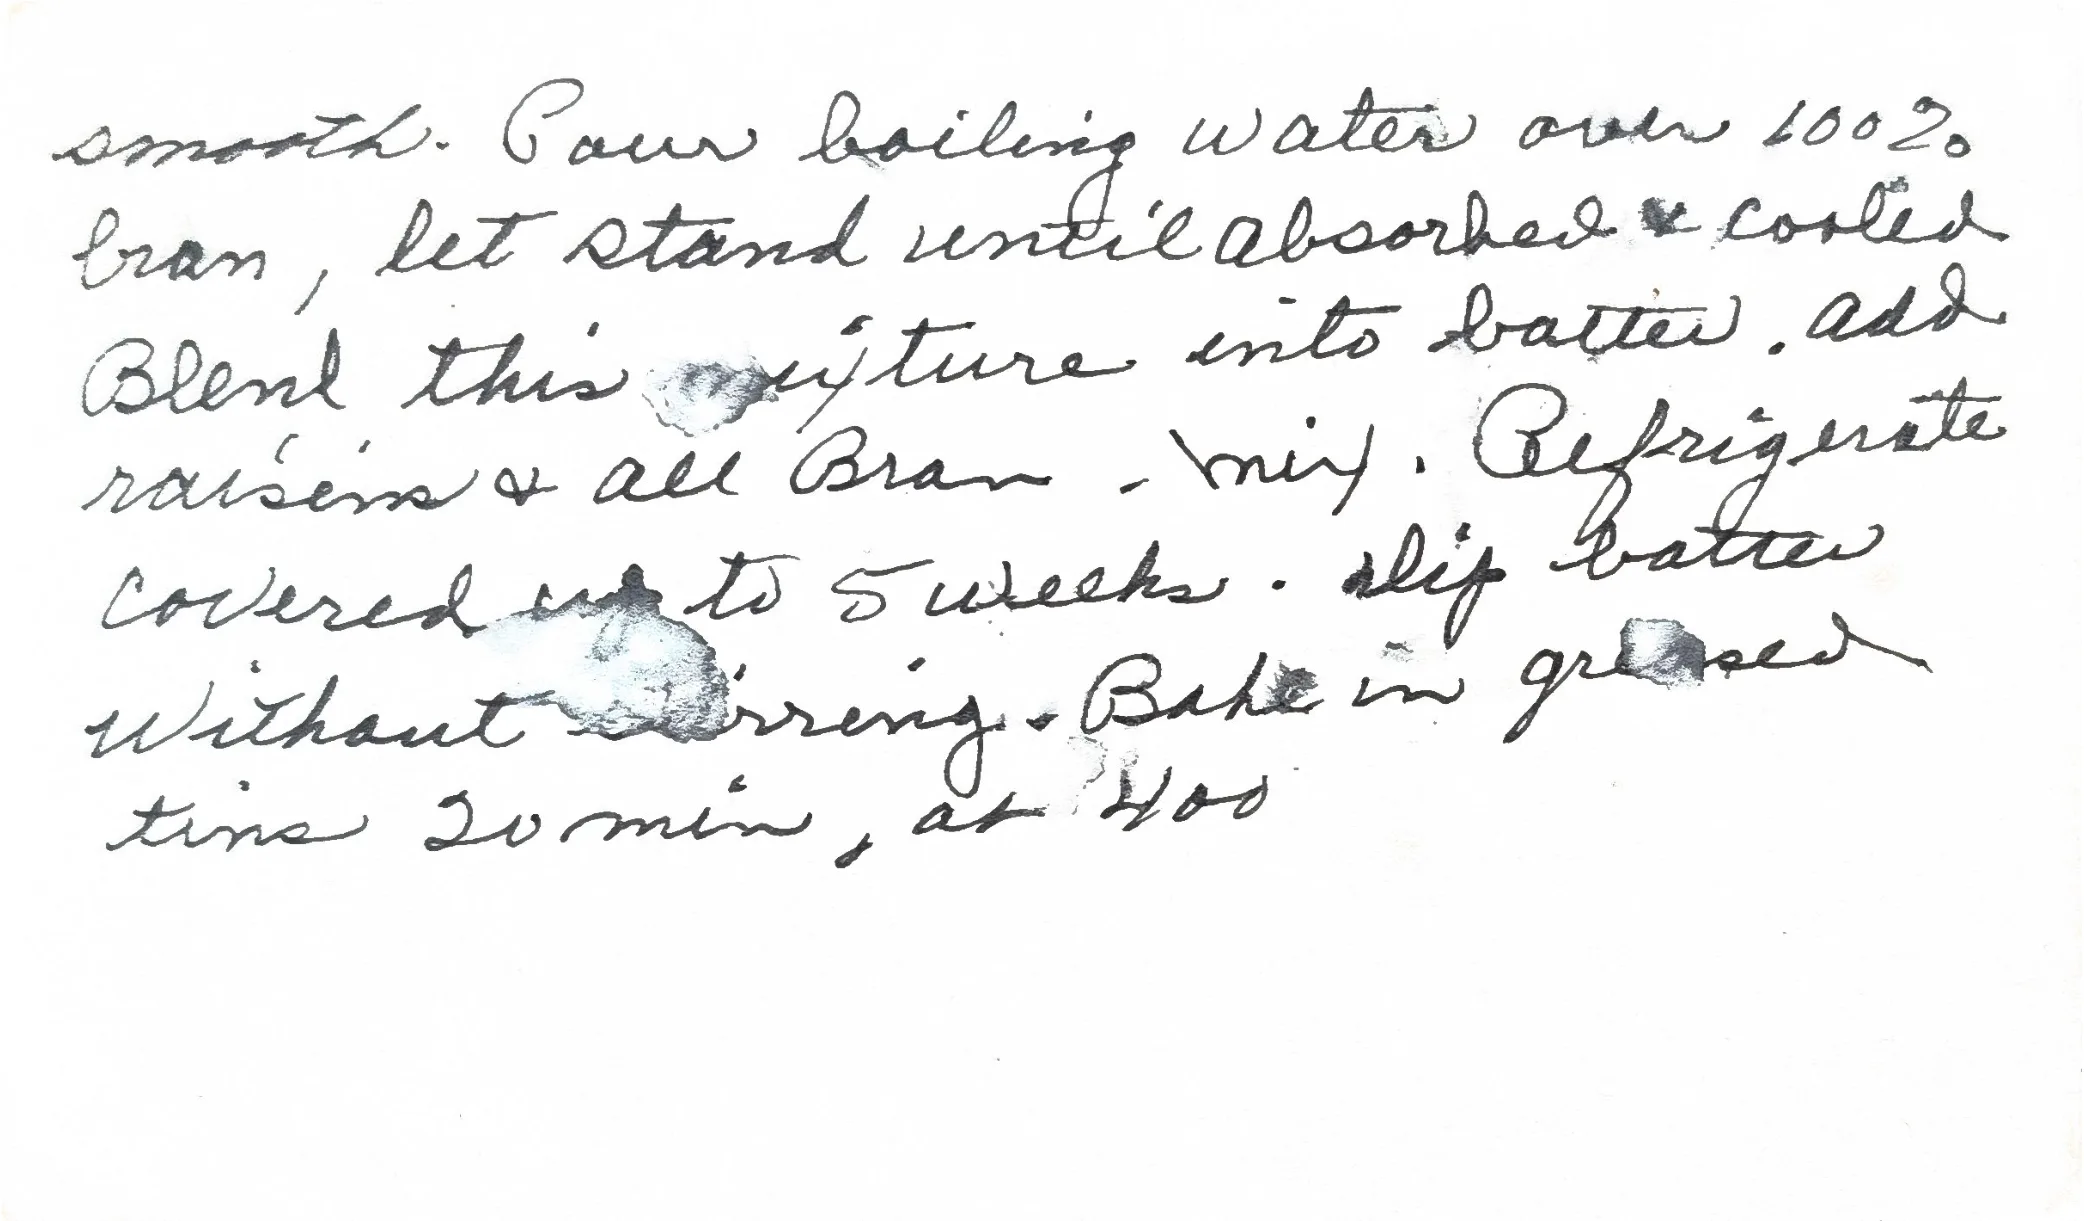 smooth. Pour boiling water over 100%
bran, let stand until absorbed & cooled
Blend this mixture into batter. add
raisins & all Bran. mix. Refrigerate
covered up to 5 weeks. dip batter
without stirring. Bake in greased
tins 20 min, at 400